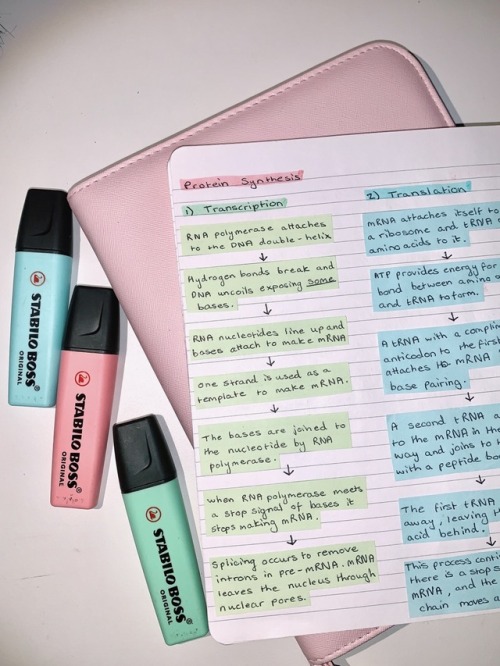 Protein Synthesis
1) Transcription
RNA polymerase attaches
to the DNA double-helix
Hydrogen bonds break and
DNA uncoils exposing some
bases.
RNA nucleotides line up and
bases attach to make mRNA
one strand is used as a
template to make mRNA.
The bases are joined to
the nucleotide by RNA
polymerase.
when RNA polymerase meets
a stop signal of bases it
stops making mRNA.
Splicing occurs to remove
introns in pre-mRNA. mRNA
leaves the nucleus through
nuclear pores.
2) Translation
mRNA attaches itself to
a ribosome and tRNA
amino acids to it.
ATP provides energy for
bond between amino
and tRNA to form.
A tRNA with a compl
anticodon to the first
attaches to mRNA
base pairing.
A second tRNA
to the mRNA in the
way and joins to
with a peptide bo
The first tRNA
away, leaving
acid behind.
This process cont
there is a stop s
mRNA, and the
chain moves a
STABILO BOSS
ORIGINAL
STABILO BOSS
ORIGINAL
STABILO BOSS
ORIGINAL